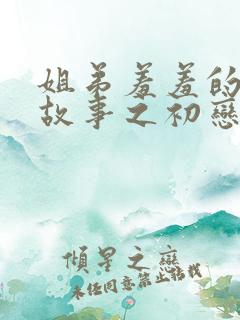 姐弟羞羞的
故事之初戀
傾星之戀
未經同意禁止轉載